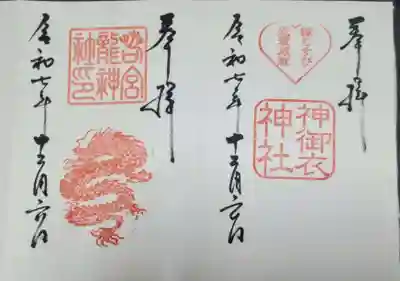 奉拝
縁むすび
神御衣
神社
令和七年十二月六日
奉拝
若宮
龍神
社印
令和七年十二月六日